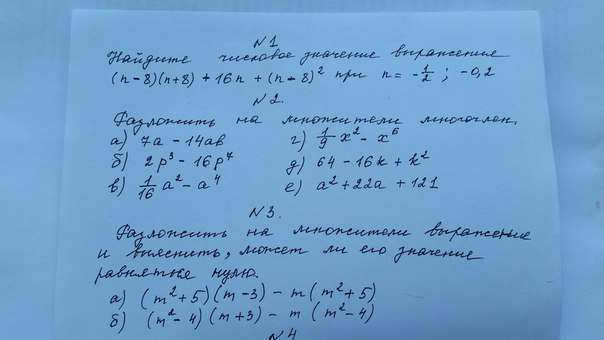 №1
Найдите числовое значение выражения
(n-8)(n+8) + 16n + (n-8)² при n = -1/2 ; -0,2
№2.
Разложить на множители многочлен.
а) 7a - 14ab г) 1/9 x² - x⁶
б) 2p³ - 16p⁷ д) 64 - 16k + k²
в) 1/16 a² - a⁴ е) a² + 22a + 121
№3.
Разложить на множители выражение
и выяснить, может ли его значение
равняться нулю.
а) (m² + 5)(m - 3) - m(m² + 5)
б) (m² - 4)(m + 3) - m(m² - 4)
№4